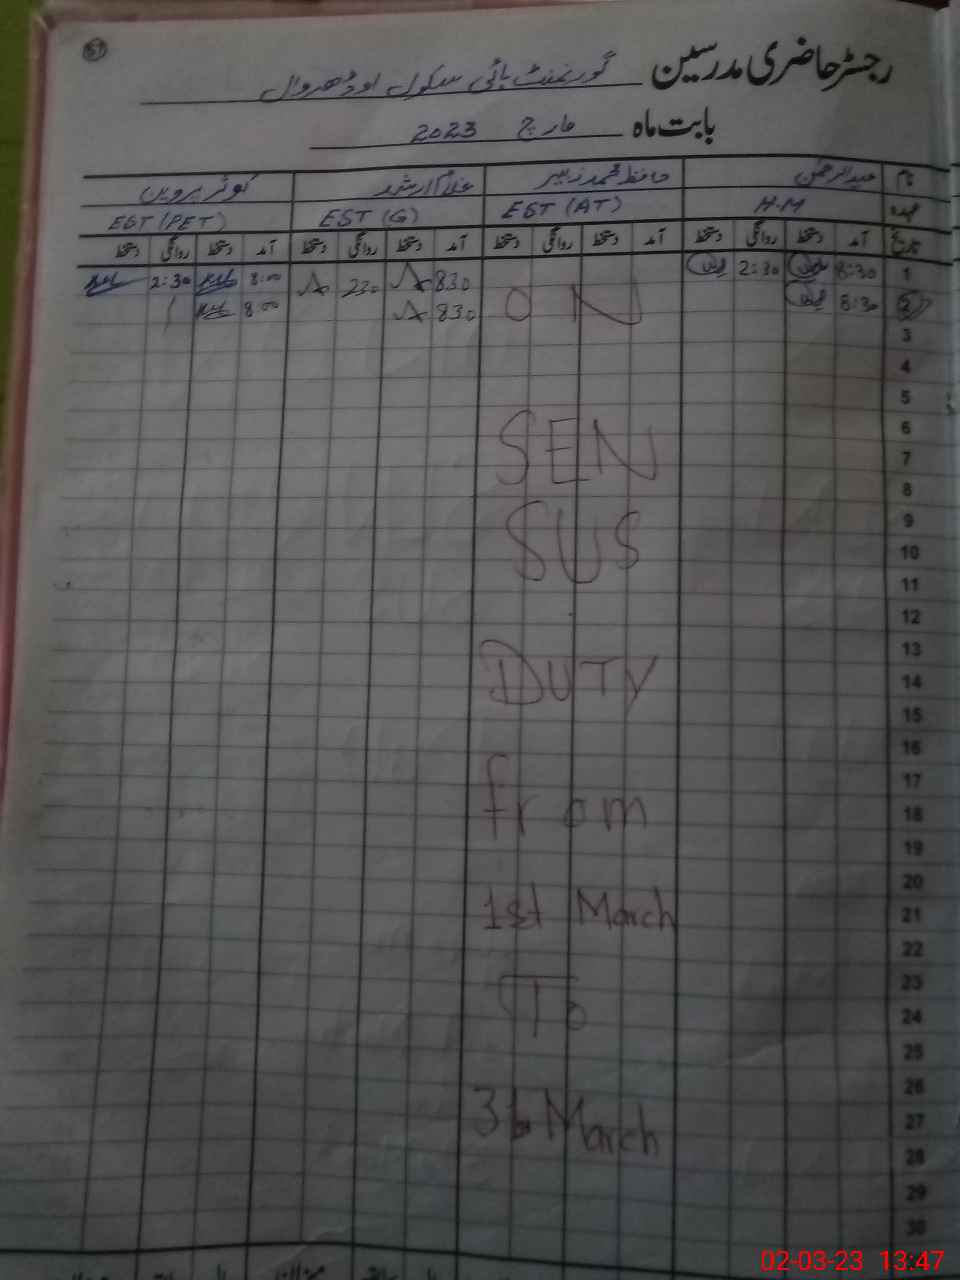 57
رجسٹر حاضری مدرسین گورنمنٹ ہائی سکول اوڈھروال
بابت ماہ مارچ 2023
نام عبدالرحمٰن حافظ محمد زبیر غلام ارشد کوثر پروین
عہدہ H.M EST (AT) EST (G) EST (PET)
تاریخ آمد دستخط روانگی دستخط آمد دستخط روانگی دستخط آمد دستخط روانگی دستخط آمد دستخط روانگی دستخط
1 8:30 2:30 830 230 8:00 2:30
2 8:30 830 8:00
ON
3
4
5
6
SEN
7
8
9
SUS
10
11
12
13
DUTY
14
15
16
17
from
18
19
20
1st March
21
22
23
To
24
25
26
March
27
28
29
30
میزان
02-03-23 13:47